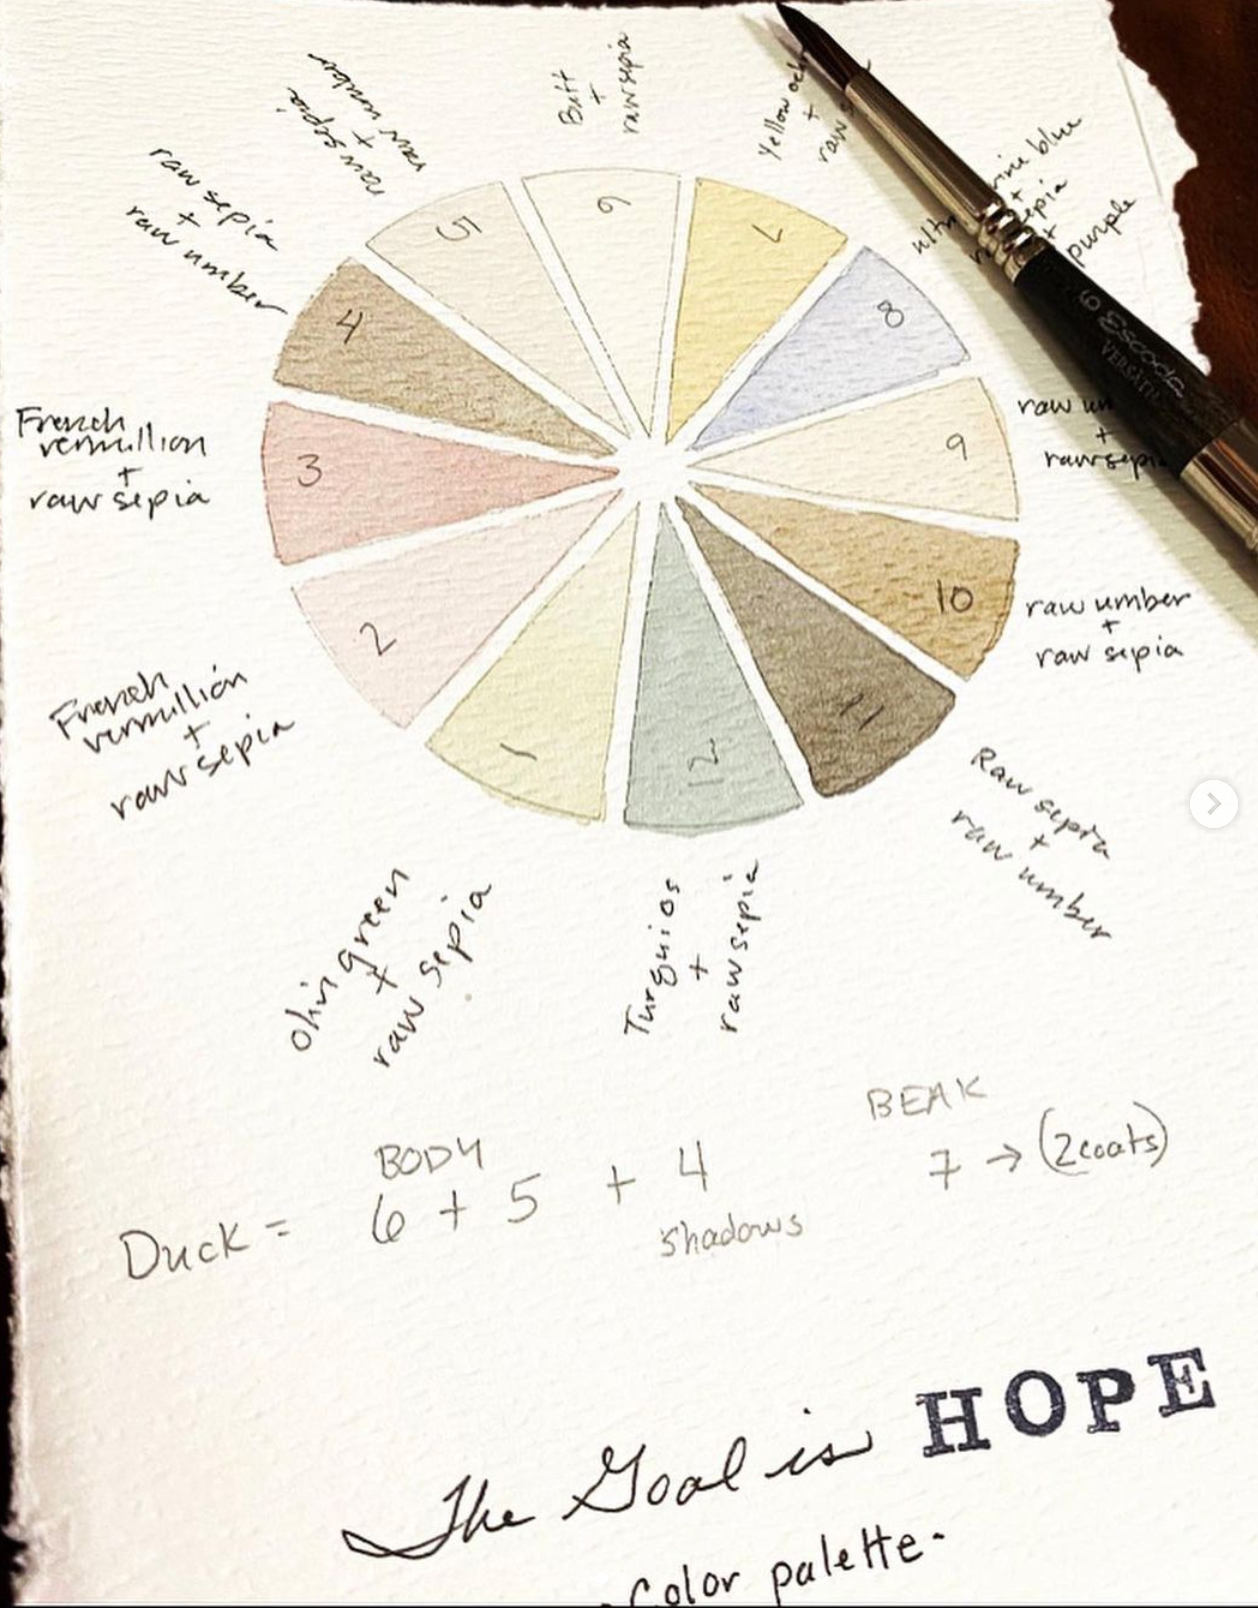 raw sepia
+
raw umber
Butt
+
raw sepia
Yellow
+
raw
blue
+
+
purple
raw sepia
+
raw umber
5
6
7
8
4
9
3
10
2
11
1
12
6 Escoda
VERSATIL
French
vermillion
+
raw sepia
raw
+
raw sepia
raw umber
+
raw sepia
French
vermillion
+
raw sepia
Raw sepia
+
raw umber
green
+
raw sepia
Turquios
+
raw sepia
BODY
BEAK
Duck = 6 + 5 + 4
7 → (2coats)
shadows
The Goal is HOPE
Color palette.